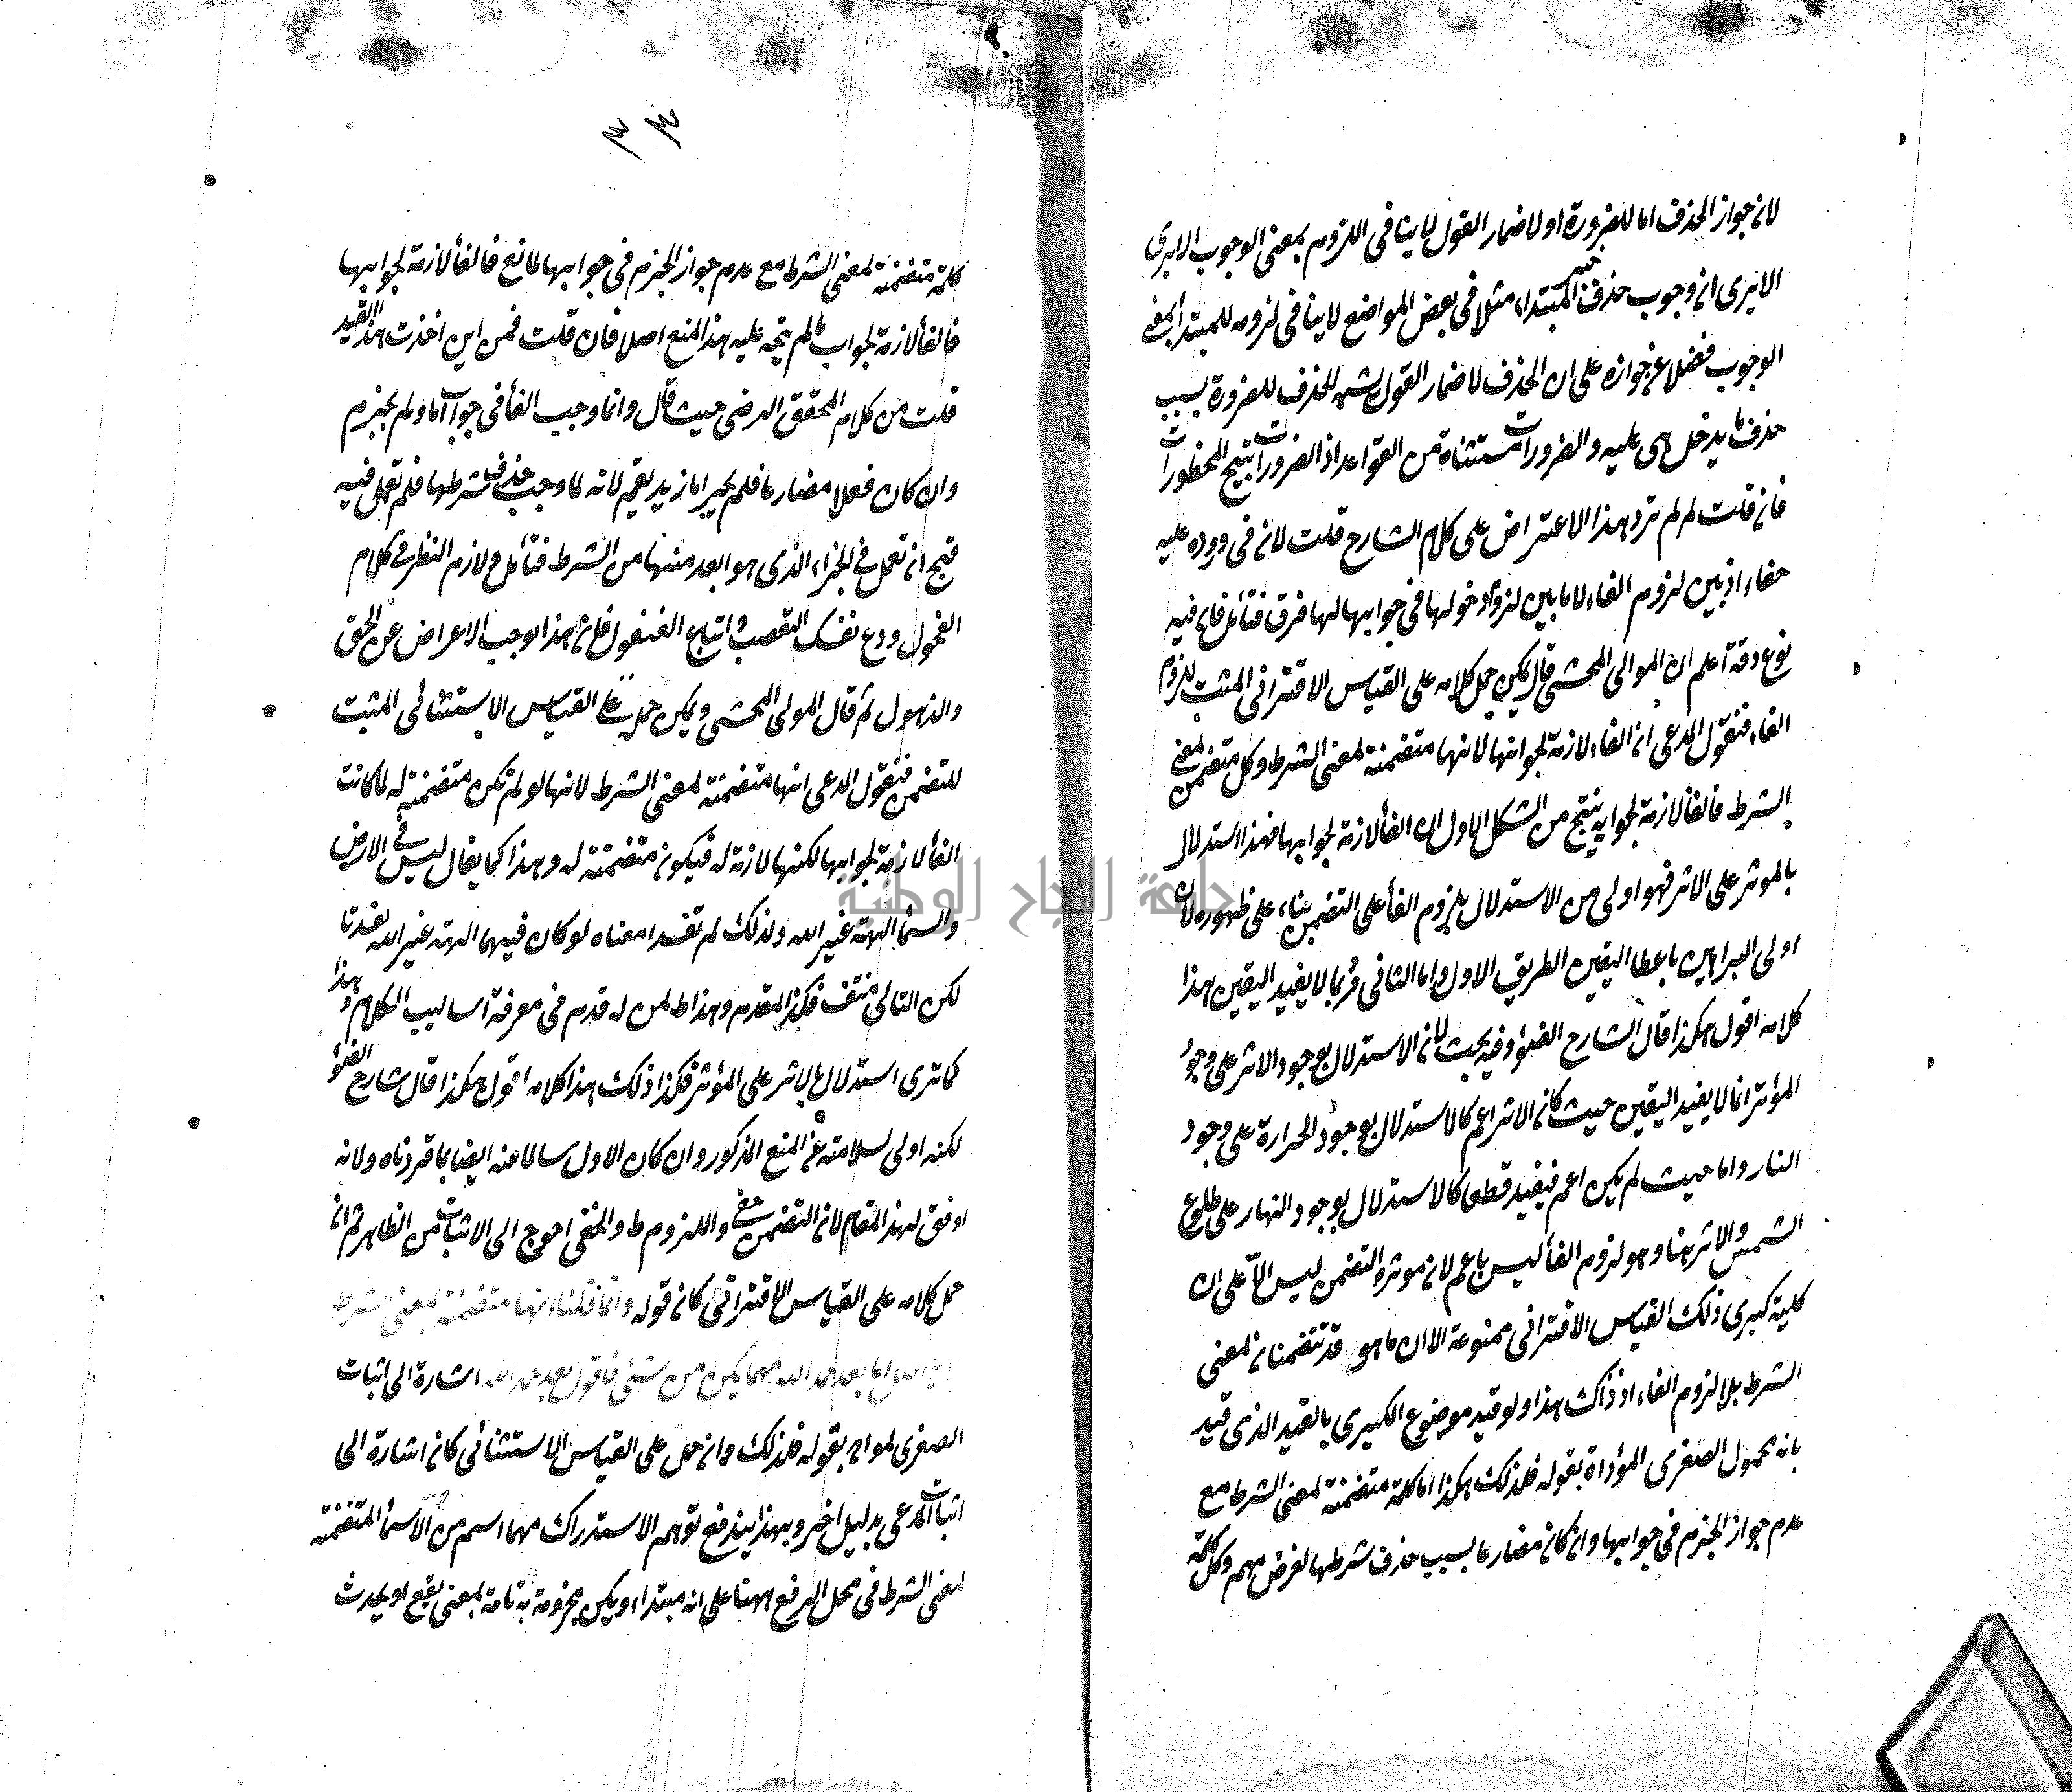 لان جواز الحذف اما للضرورة او لاضمار القول لا ينافى اللزوم بمعنى الوجوب الا يرى
الا يرى ان وجوب حذف خبر المبتداء مثلا فى بعض المواضع لا ينافى لزومه للمبتدا بمعنى
الوجوب فضلا عن جوازه على ان الحذف لاضمار القول للحذف للضرورة بسبب
حذف ما يدخل هى عليه والضرورات مستثناة من القواعد اذ الضرورات تبيح المحظورات
فان قلت لم لم ترد هذا الاعتراض على كلام الشارح قلت لان فى وروده عليه
خفاء اذ بين لزوم الفاء لاما وبين لزوم دخولها فى جوابها لها فرق فتأمل فان فيه
نوع دقة اعلم ان الموالى المحشى قال يمكن حمل كلامه على القياس الاقترانى المثبت للزوم
الفاء فنقول المدعى ان الفاء لازمة لجوابها لانها متضمنة لمعنى الشرط وكل متضمن لمعنى
الشرط فالفا لازمة لجوابه ينتج من الشكل الاول ان الفأ لازمة لجوابها فهذا استدلال
بالموثر على الاثر فهو اولى من الاستدلال بلزوم الفأ على التضمن بناء على ظهوره لان
اولى البراهين باعطا اليقين الطريق الاول واما الثانى فربما لا يفيد اليقين هذا
كلامه اقول هكذا قال الشارح الضوء وفيه بحث لان الاستدلال بوجود الاثر على وجود
المؤثر انما لا يفيد اليقين حيث كان الاثر اعم كالاستدلال بوجود الحرارة على وجود
النار واما حيث لم يكن اعم فيفيد قطعا كالاستدلال بوجود النهار على طلوع
الشمس والاثر هنا وهو لزوم الفأ ليس باعم لان موثره التضمن ليس الا على ان
كلية كبرى ذلك القياس الاقترانى ممنوعة الا ان ما هو قد تتضمنان لمعنى
الشرط بلا لزوم الفاء اذ ذاك هذا ولو قيد موضوع الكبرى بالقيد الذى قيد
بانه محمول الصغرى المؤداة بقوله فلذلك هكذا اما كلمة متضمنة لمعنى الشرط مع
عدم جواز الجزم فى جوابها وان كان مضارعا بسبب حذف شرطها لغرض مهم وكل كلمة
٣٣
كلمة متضمنة لمعنى الشرط مع عدم جواز الجزم فى جوابها لمانع فالفأ لازمة لجوابها
فالفأ لازمة لجواب ما لم يتجه عليه هذا المنع اصلا فان قلت فمن اين اخذت هذا القيد
قلت من كلام المحقق الرضى حيث قال وانما وجب الفأ فى جواب اما ولم يجزم
وان كان فعلا مضارعا فلم يجز اما زيد يقم لانه لما وجب حذف شرطها فلم تعمل فيه
قبح ان تعمل فى الجزاء الذى هو ابعد منها من الشرط فتأمل ولازم النظر فى كلام
الفحول ودع نفسك التعصب واتباع الفضول فان هذا يوجب الاعراض عن الحق
والذهول ثم قال المولى المحشى ويمكن حمله على القياس الاستثنائى المثبت
للتضمن فنقول المدعى انها متضمنة لمعنى الشرط لانها لو لم تكن متضمنة له لما كانت
الفأ لازمة لجوابها لكنها لازمة له فيكون متضمنة له وهذا كما يقال ليس فى الارض
والسمأ الهة غير الله ولذلك لم تفسدا معناه لو كان فيهما الهة غير الله لفسدتا
لكن التالى منتف فكذا المقدم وهذا ط لمن له قدم فى معرفة اساليب الكلام وهذا
كما ترى استدلال بالاثر على المؤثر فكذا ذلك هذا كلامه اقول هكذا قال شارح الضؤ
لكنه اولى لسلامته عن المنع المذكور وان كان الاول سالما عنه ايضا بما قررناه ولانه
اوفق لهذا المقام لان التضمن خفى واللزوم ط والخفى احوج الى الاثبات من الظاهر ثم ان
حمل كلامه على القياس الاقترانى كان قوله وانما قلنا انها متضمنة لمعنى الشرط
اما بعد حمد الله مهما يكن من شئ فاقول بعد حمد الله اشارة الى اثبات
الصغرى لمواه بقوله فلذلك وان حمل على القياس الاستثنائى كان اشارة الى
اثبات المدعى بدليل اخر وبهذا يندفع توهم الاستدراك مهما اسم من الاسمأ المتضمنة
لمعنى الشرط فى محل الرفع ههنا على انه مبتداء ويكن مجزومة به تامة بمعنى يقع او يحدث